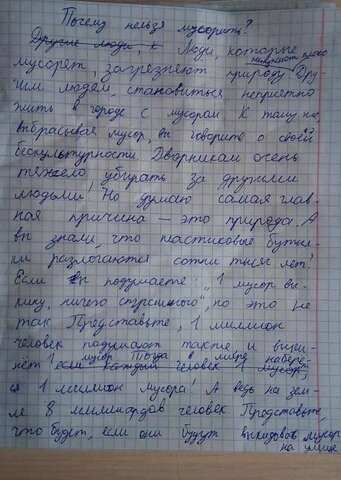 Почему нельзя мусорить?
Другие люди, к Люди, которые
поступают плохо
мусорят, загрезняют природу. Дру-
гим людем, становиться неприетно
жить в городе с мусором. К таму же,
выбрасывая мусор, вы говорите о своей
бескультурности. Дворникам очень
тяжело убирать за другими
людьми! Но думаю самая глав-
ная причина — это природа. А
вы знали, что пластиковые бутыл-
ки разлогаются сотни тысяч лет!
Если вы подумаете: „1 мусор вы-
кину, ничего страшного", но это не
так. Представьте, 1 миллион
человек подумают также и выки-
нет 1 мусор. Тогда в мире наберет-
если каждый человек 1 мусор,
ся 1 миллион мусора! А ведь на зем-
ле 8 миллиардов человек. Представьте,
что будет, если они будут выкидовать мусор
на улице